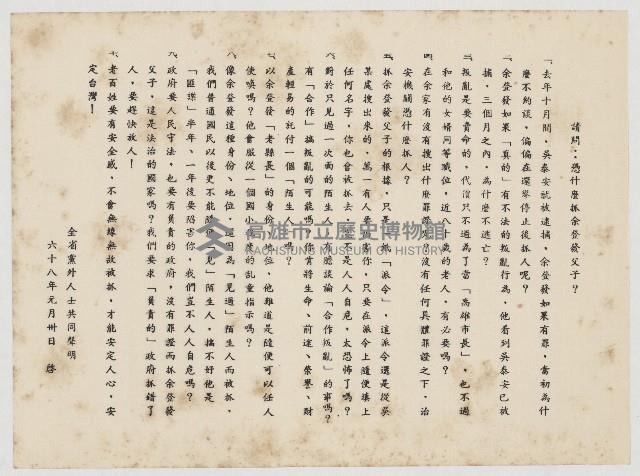 請問：憑什麼抓余登發父子？
一、去年十月間，吳泰安就被逮捕，余登發如果有罪，當初為什
麼不約談，偏偏在選舉停止後抓人呢？
二、余登發如果「真的」有不法的叛亂行為，他看到吳泰安已被
捕，三個月之內，為什麼不逃亡？
三、叛亂是要賣命的，代價只不過為了當「高雄市長」，也不過
和他的女婿同等職位，近八十歲的老人，有必要嗎？
四、在余家有沒有搜出什麼罪證呢？沒有任何具體罪證之下，治
安機關憑什麼抓人？
五、抓余登發父子的根據，只是一紙「派令」，這派令還是從吳
某處搜出來的，萬一有人要陷害你，只要在派令上隨便填上
任何名字，你也會被抓去，不是人人自危，太恐怖了嗎？
六、對於只見過一次面的陌生人，有膽談論「合作叛亂」的事嗎？
有「合作」搞叛亂的可能嗎？你肯將生命、前途、榮譽、財
產輕易的託付一個「陌生人」嗎？
七、以余登發「老縣長」的身份、地位，他難道是隨便可以任人
使喚嗎？他會服從一個國小程度的乩童指示嗎？
八、像余登發這種身份、地位，還因為「見過」陌生人而被抓，
我們普通國民以後更不能隨便「見」陌生人，搞不好他是
「匪諜」，半年、一年後要陷害你，我們豈不人人自危嗎？
九、政府要人民守法，也要有負責的政府，沒有罪證而抓余登發
父子，這是法治的國家嗎？我們要求「負責的」政府抓錯了
人，要趕快放人！
十、老百姓要有安全感，不會無緣無故被抓，才能安定人心，安
定台灣！
全省黨外人士共同聲明
六十八年元月卅日 啓
高雄市立歷史博物館
KAOHSIUNG MUSEUM OF HISTORY